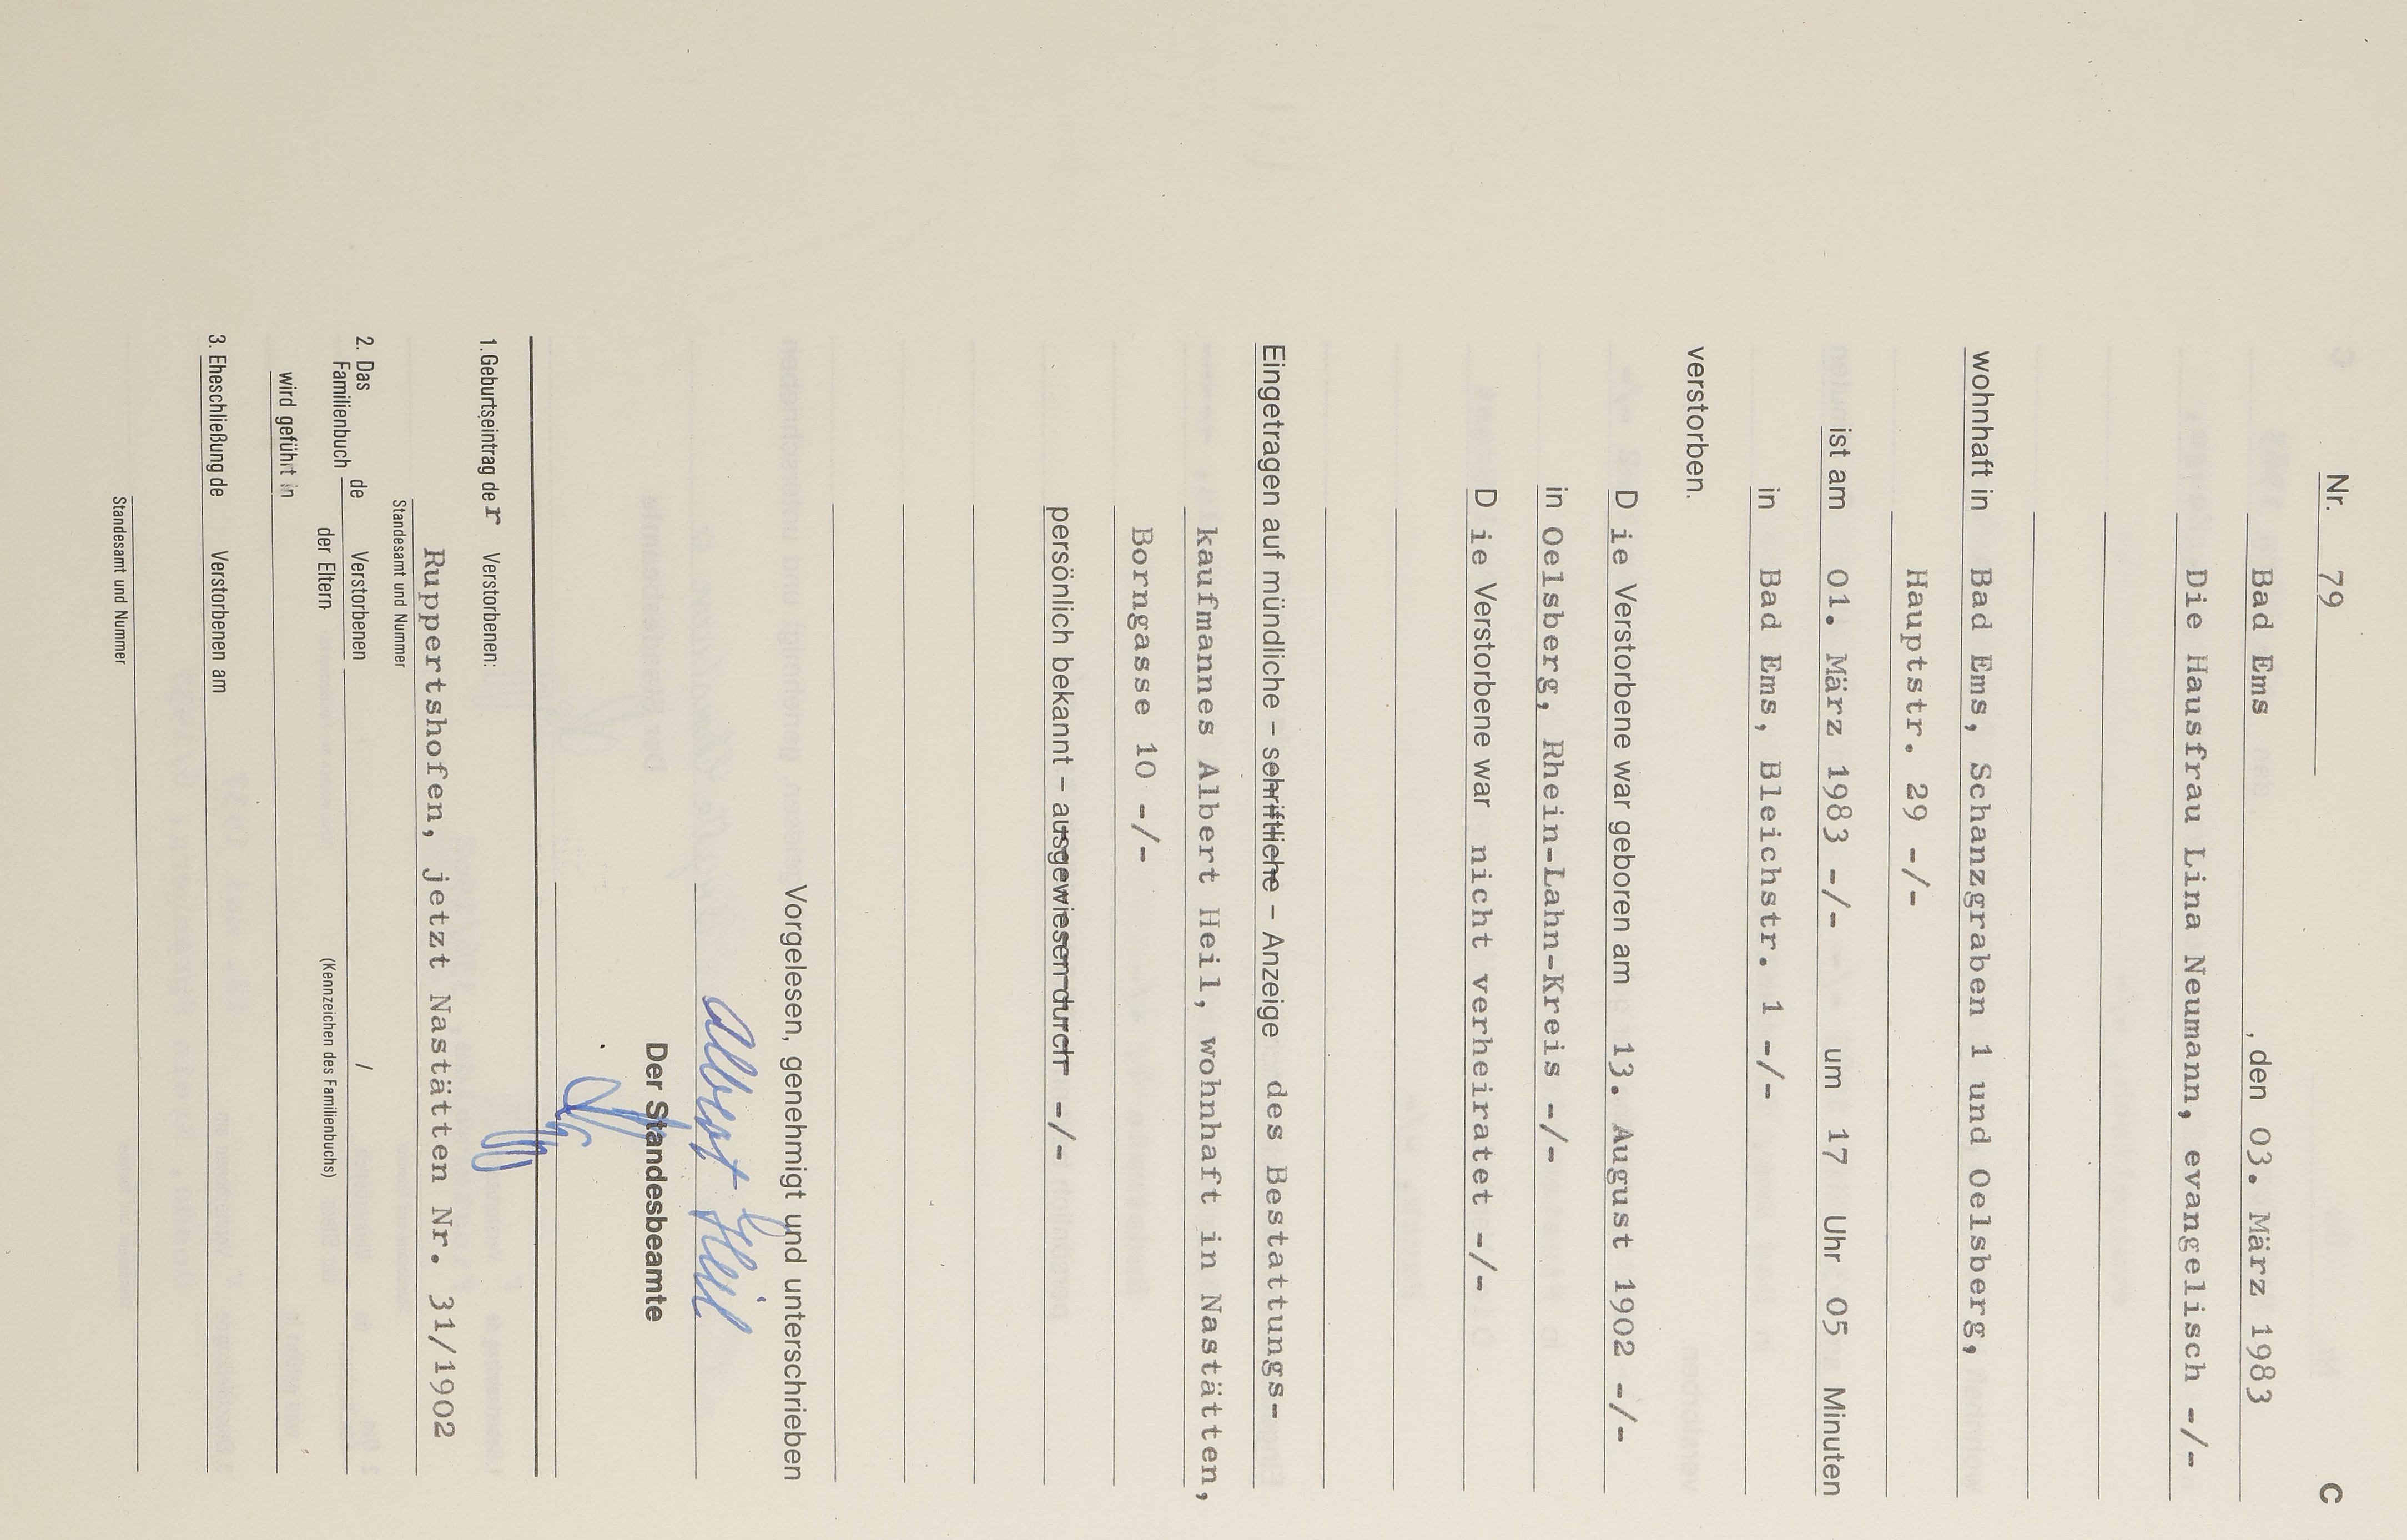 Nr. 79 C
Bad Ems, den 03. März 1983
Die Hausfrau Lina Neumann, evangelisch -/-
wohnhaft in Bad Ems, Schanzgraben 1 und Oelsberg,
Hauptstr. 29 -/-
ist am 01. März 1983 -/- um 17 Uhr 05 Minuten
in Bad Ems, Bleichstr. 1 -/-
verstorben.
D ie Verstorbene war geboren am 13. August 1902 -/-
in Oelsberg, Rhein-Lahn-Kreis -/-
D ie Verstorbene war nicht verheiratet -/-
Eingetragen auf mündliche – schriftliche – Anzeige des Bestattungs-
kaufmannes Albert Heil, wohnhaft in Nastätten,
Borngasse 10 -/-
persönlich bekannt – ausgewiesen durch -/-
Vorgelesen, genehmigt und unterschrieben
Albert Heil
Der Standesbeamte
1. Geburtseintrag der Verstorbenen:
Ruppertshofen, jetzt Nastätten Nr. 31/1902
Standesamt und Nummer
2. Das Familienbuch de Verstorbenen /
der Eltern (Kennzeichen des Familienbuchs)
wird geführt in
3. Eheschließung de Verstorbenen am
Standesamt und Nummer